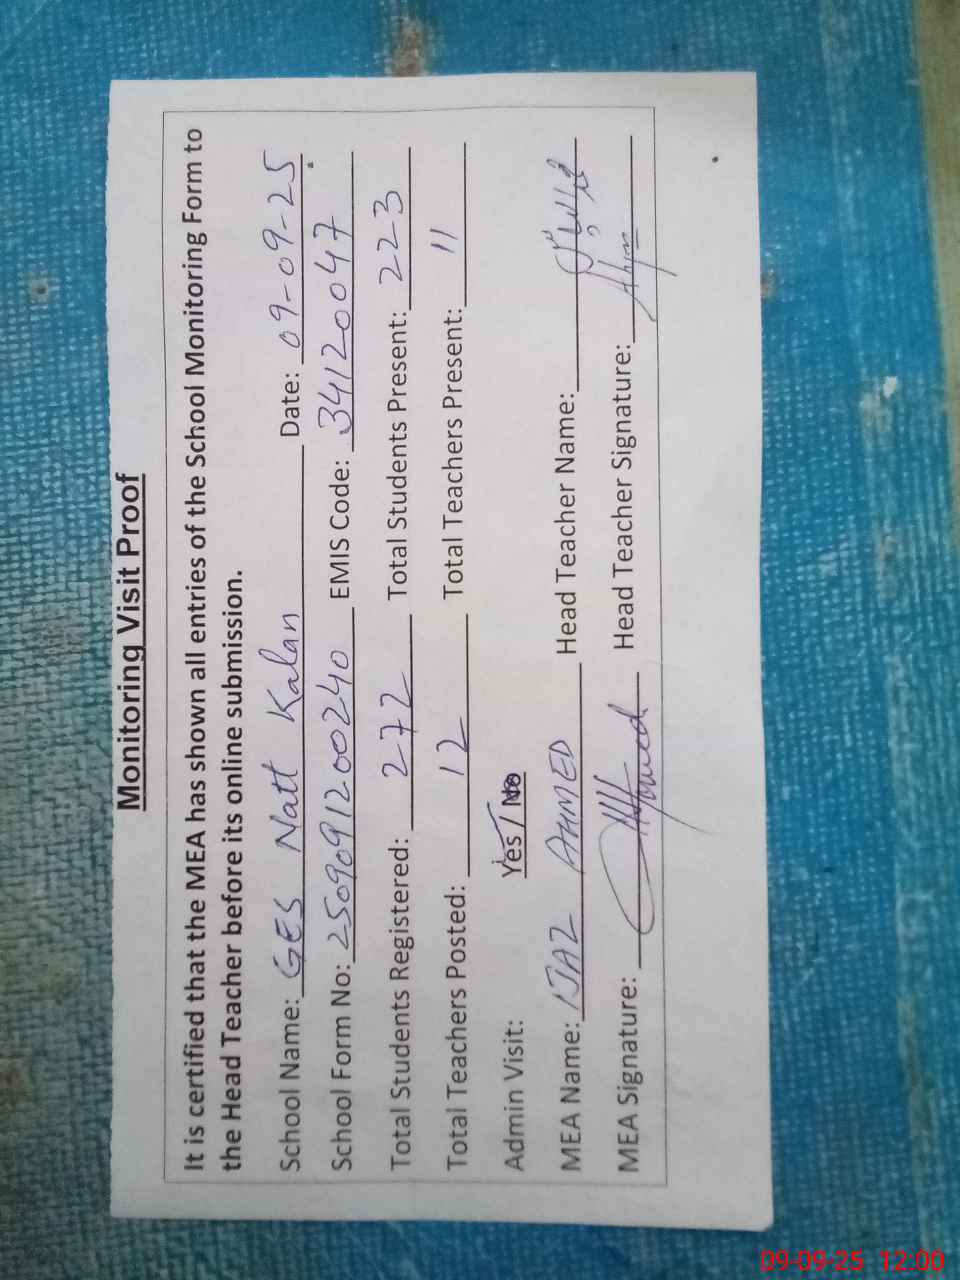 Monitoring Visit Proof
It is certified that the MEA has shown all entries of the School Monitoring Form to
the Head Teacher before its online submission.
School Name: GES Natt Kalan Date: 09-09-25
School Form No: 2509091200240 EMIS Code: 34120047
Total Students Registered: 272 Total Students Present: 223
Total Teachers Posted: 12 Total Teachers Present: 11
Admin Visit: Yes / No
MEA Name: IJAZ AHMED Head Teacher Name:
MEA Signature: Head Teacher Signature:
09-09-25 12:00